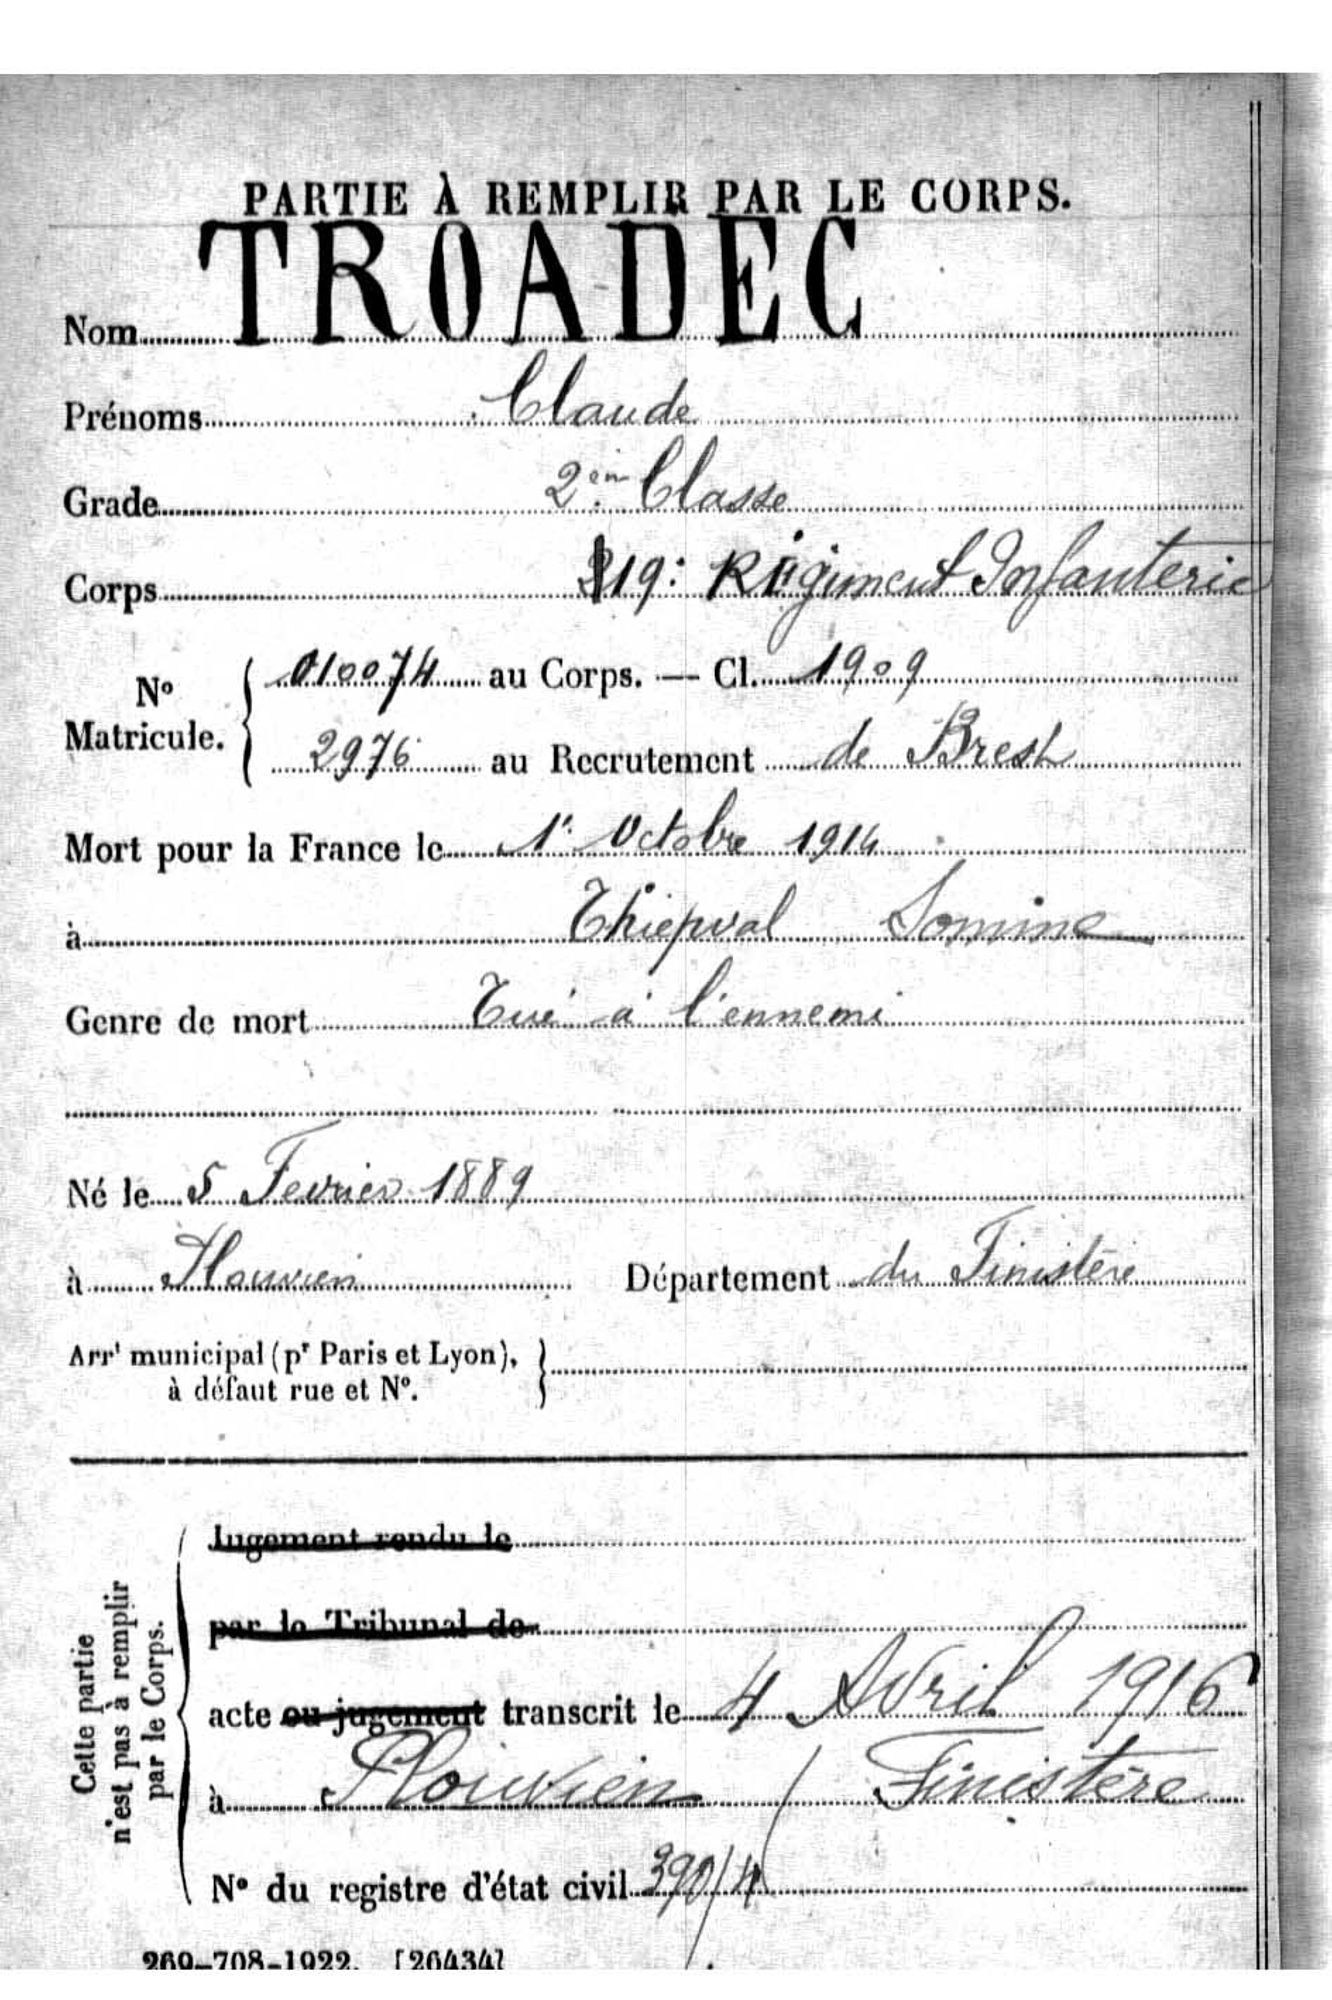 PARTIE À REMPLIR PAR LE CORPS.
Nom TROADEC
Prénoms Claude
Grade 2em Classe
Corps 319: Régiment Infanterie
No Matricule. 010074 au Corps. — Cl. 1909
2976 au Recrutement de Brest
Mort pour la France le 1r Octobre 1914
à Thiepval Somme
Genre de mort Tué à l'ennemi
Né le 5 Fevrier 1889
à Plouvien Département du Finistère
Arrt municipal (pr Paris et Lyon),
à défaut rue et No.
Cette partie
n'est pas à remplir
par le Corps.
Jugement rendu le
par le Tribunal de
acte ou jugement transcrit le 4 Avril 1916
à Plouvien / Finistère
No du registre d'état civil 390/4
269-708-1922. [26434]